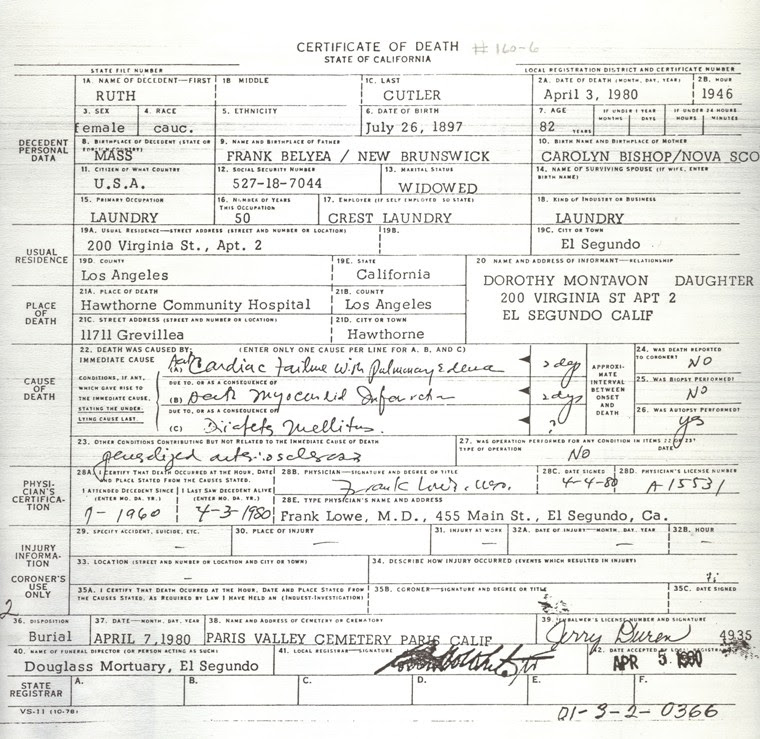 CERTIFICATE OF DEATH # 160-6
STATE OF CALIFORNIA
STATE FILE NUMBER LOCAL REGISTRATION DISTRICT AND CERTIFICATE NUMBER
DECEDENT PERSONAL DATA
1A. NAME OF DECEDENT—FIRST 1B. MIDDLE 1C. LAST 2A. DATE OF DEATH (MONTH, DAY, YEAR) 2B. HOUR
RUTH CUTLER April 3, 1980 1946
3. SEX 4. RACE 5. ETHNICITY 6. DATE OF BIRTH 7. AGE IF UNDER 1 YEAR IF UNDER 24 HOURS
MONTHS DAYS HOURS MINUTES
female cauc. July 26, 1897 82 YEARS
8. BIRTHPLACE OF DECEDENT (STATE OR FOREIGN COUNTRY) 9. NAME AND BIRTHPLACE OF FATHER 10. BIRTH NAME AND BIRTHPLACE OF MOTHER
MASS FRANK BELYEA / NEW BRUNSWICK CAROLYN BISHOP/NOVA SCO
11. CITIZEN OF WHAT COUNTRY 12. SOCIAL SECURITY NUMBER 13. MARITAL STATUS 14. NAME OF SURVIVING SPOUSE (IF WIFE, ENTER BIRTH NAME)
U.S.A. 527-18-7044 WIDOWED
15. PRIMARY OCCUPATION 16. NUMBER OF YEARS THIS OCCUPATION 17. EMPLOYER (IF SELF EMPLOYED, SO STATE) 18. KIND OF INDUSTRY OR BUSINESS
LAUNDRY 50 CREST LAUNDRY LAUNDRY
USUAL RESIDENCE
19A. USUAL RESIDENCE—STREET ADDRESS (STREET AND NUMBER OR LOCATION) 19B. 19C. CITY OR TOWN
200 Virginia St., Apt. 2 El Segundo
19D. COUNTY 19E. STATE 20 NAME AND ADDRESS OF INFORMANT—RELATIONSHIP
Los Angeles California DOROTHY MONTAVON DAUGHTER
200 VIRGINIA ST APT 2
EL SEGUNDO CALIF
PLACE OF DEATH
21A. PLACE OF DEATH 21B. COUNTY
Hawthorne Community Hospital Los Angeles
21C. STREET ADDRESS (STREET AND NUMBER OR LOCATION) 21D. CITY OR TOWN
11711 Grevillea Hawthorne
CAUSE OF DEATH
22. DEATH WAS CAUSED BY: (ENTER ONLY ONE CAUSE PER LINE FOR A, B, AND C) 24. WAS DEATH REPORTED TO CORONER?
IMMEDIATE CAUSE
(A) Cardiac Failure with Pulmonary Edema 2 days NO
CONDITIONS, IF ANY, WHICH GAVE RISE TO THE IMMEDIATE CAUSE, STATING THE UNDERLYING CAUSE LAST.
DUE TO, OR AS A CONSEQUENCE OF
APPROXIMATE INTERVAL BETWEEN ONSET AND DEATH
25. WAS BIOPSY PERFORMED?
(B) Myocardial Infarction 2 days NO
DUE TO, OR AS A CONSEQUENCE OF 26. WAS AUTOPSY PERFORMED?
(C) Diabetes Mellitus ? yes
23. OTHER CONDITIONS CONTRIBUTING BUT NOT RELATED TO THE IMMEDIATE CAUSE OF DEATH 27. WAS OPERATION PERFORMED FOR ANY CONDITION IN ITEMS 22 OR 23?
TYPE OF OPERATION
generalized arteriosclerosis NO
PHYSICIAN'S CERTIFICATION
28A. I CERTIFY THAT DEATH OCCURRED AT THE HOUR, DATE AND PLACE STATED FROM THE CAUSES STATED. 28B. PHYSICIAN—SIGNATURE AND DEGREE OR TITLE 28C. DATE SIGNED 28D. PHYSICIAN'S LICENSE NUMBER
Frank Lowe, M.D. 4-4-80 A15531
I ATTENDED DECEDENT SINCE (ENTER MO. DA. YR.) I LAST SAW DECEDENT ALIVE (ENTER MO. DA. YR.) 28E. TYPE PHYSICIAN'S NAME AND ADDRESS
7-1960 4-3-1980 Frank Lowe, M.D., 455 Main St., El Segundo, Ca.
INJURY INFORMATION
29. SPECIFY ACCIDENT, SUICIDE, ETC. 30. PLACE OF INJURY 31. INJURY AT WORK 32A. DATE OF INJURY—MONTH, DAY, YEAR 32B. HOUR
— — — — —
33. LOCATION (STREET AND NUMBER OR LOCATION AND CITY OR TOWN) 34. DESCRIBE HOW INJURY OCCURRED (EVENTS WHICH RESULTED IN INJURY)
—
CORONER'S USE ONLY
35A. I CERTIFY THAT DEATH OCCURRED AT THE HOUR, DATE AND PLACE STATED FROM THE CAUSES STATED, AS REQUIRED BY LAW I HAVE HELD AN (INQUEST-INVESTIGATION) 35B. CORONER—SIGNATURE AND DEGREE OR TITLE 35C. DATE SIGNED
2
36. DISPOSITION 37. DATE—MONTH, DAY, YEAR 38. NAME AND ADDRESS OF CEMETERY OR CREMATORY 39. EMBALMER'S LICENSE NUMBER AND SIGNATURE
Burial APRIL 7,1980 PARIS VALLEY CEMETERY PARIS CALIF Jerry Duren 4935
40. NAME OF FUNERAL DIRECTOR (OR PERSON ACTING AS SUCH) 41. LOCAL REGISTRAR—SIGNATURE 42. DATE ACCEPTED BY LOCAL REGISTRAR
Douglass Mortuary, El Segundo APR 5 1980
STATE REGISTRAR A. B. C. D. E. F.
VS-11 (10-78) 01-3-2-0366